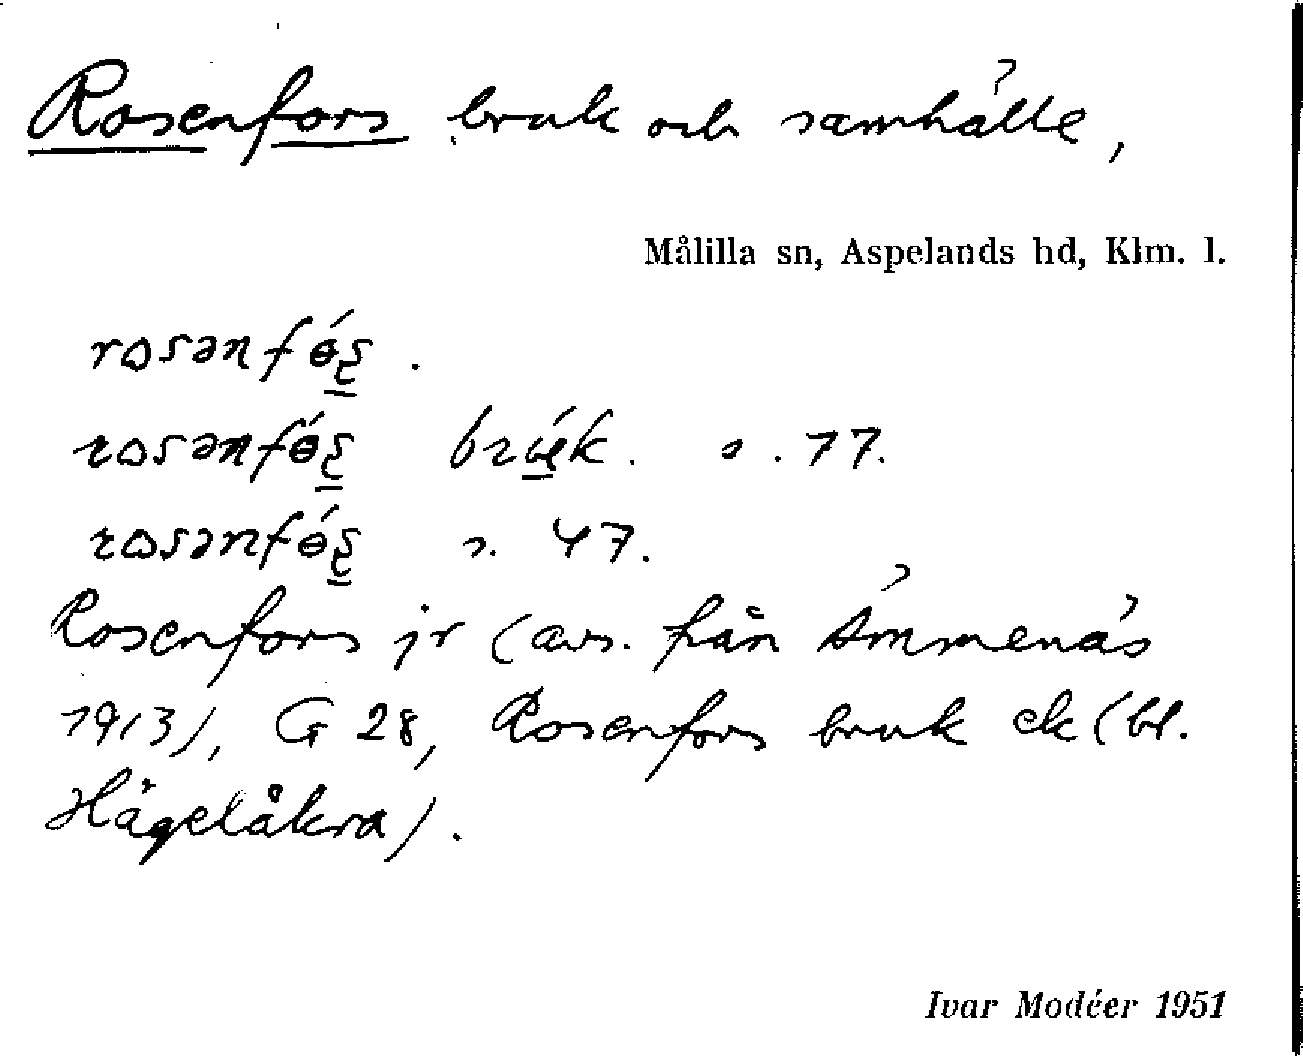 Rosenfors bruk och samhälle,
Målilla sn, Aspelands hd, Klm. l.
rosənfɵ́ʂ.
rosənfɵ́ʂ brʉ́k. s. 77.
rosənfɵ́ʂ s. 47.
Rosenfors jr (avs. från Ämmenäs
1913), G 28, Rosenfors bruk ek (bl.
Hägelåkra).
Ivar Modéer 1951